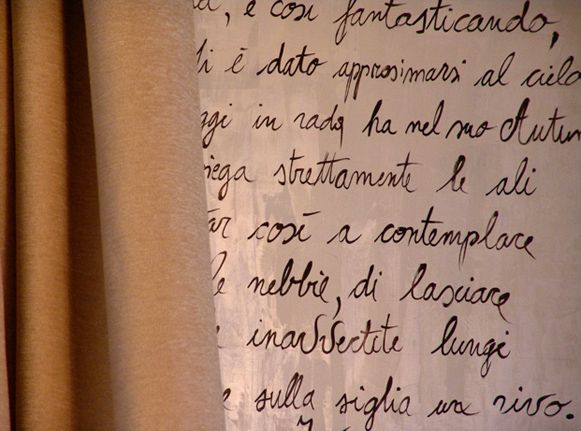 , e così fantasticando,
è dato approsimarsi al cielo
in rada ha nel suo Autun
strettamente le ali
così a contemplare
nebbie, di lasciare
inavvertite lungi
sulla siglia un rivo.